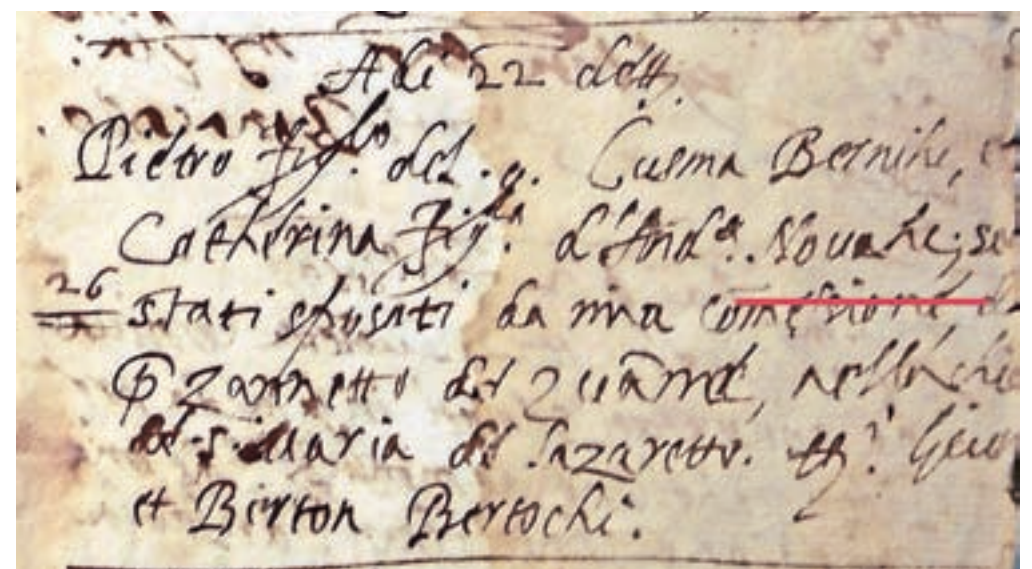 Adi 22 dett.
Pietro fig.lo del .q. Cusma Bernini, e
Catherina fig.la d'And.a Nouane; so
26 stati sposati da mia comessione, d
P Zannetto del Zuanne, nella chi
de S. Maria del Lazaretto.
et Berton Bertochi.